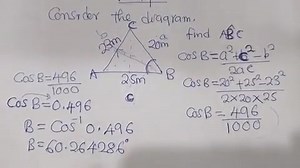 Consider the diagram.
C
23m
b
20m
a
A
25m
B
C
find AB̂C
CosB = a² + c² - b²
2ac
CosB = 20² + 25² - 23²
2×20×25
CosB = 496
1000
CosB = 496
1000
CosB = 0.496
B = Cos⁻¹ 0.496
B = 60.264286°